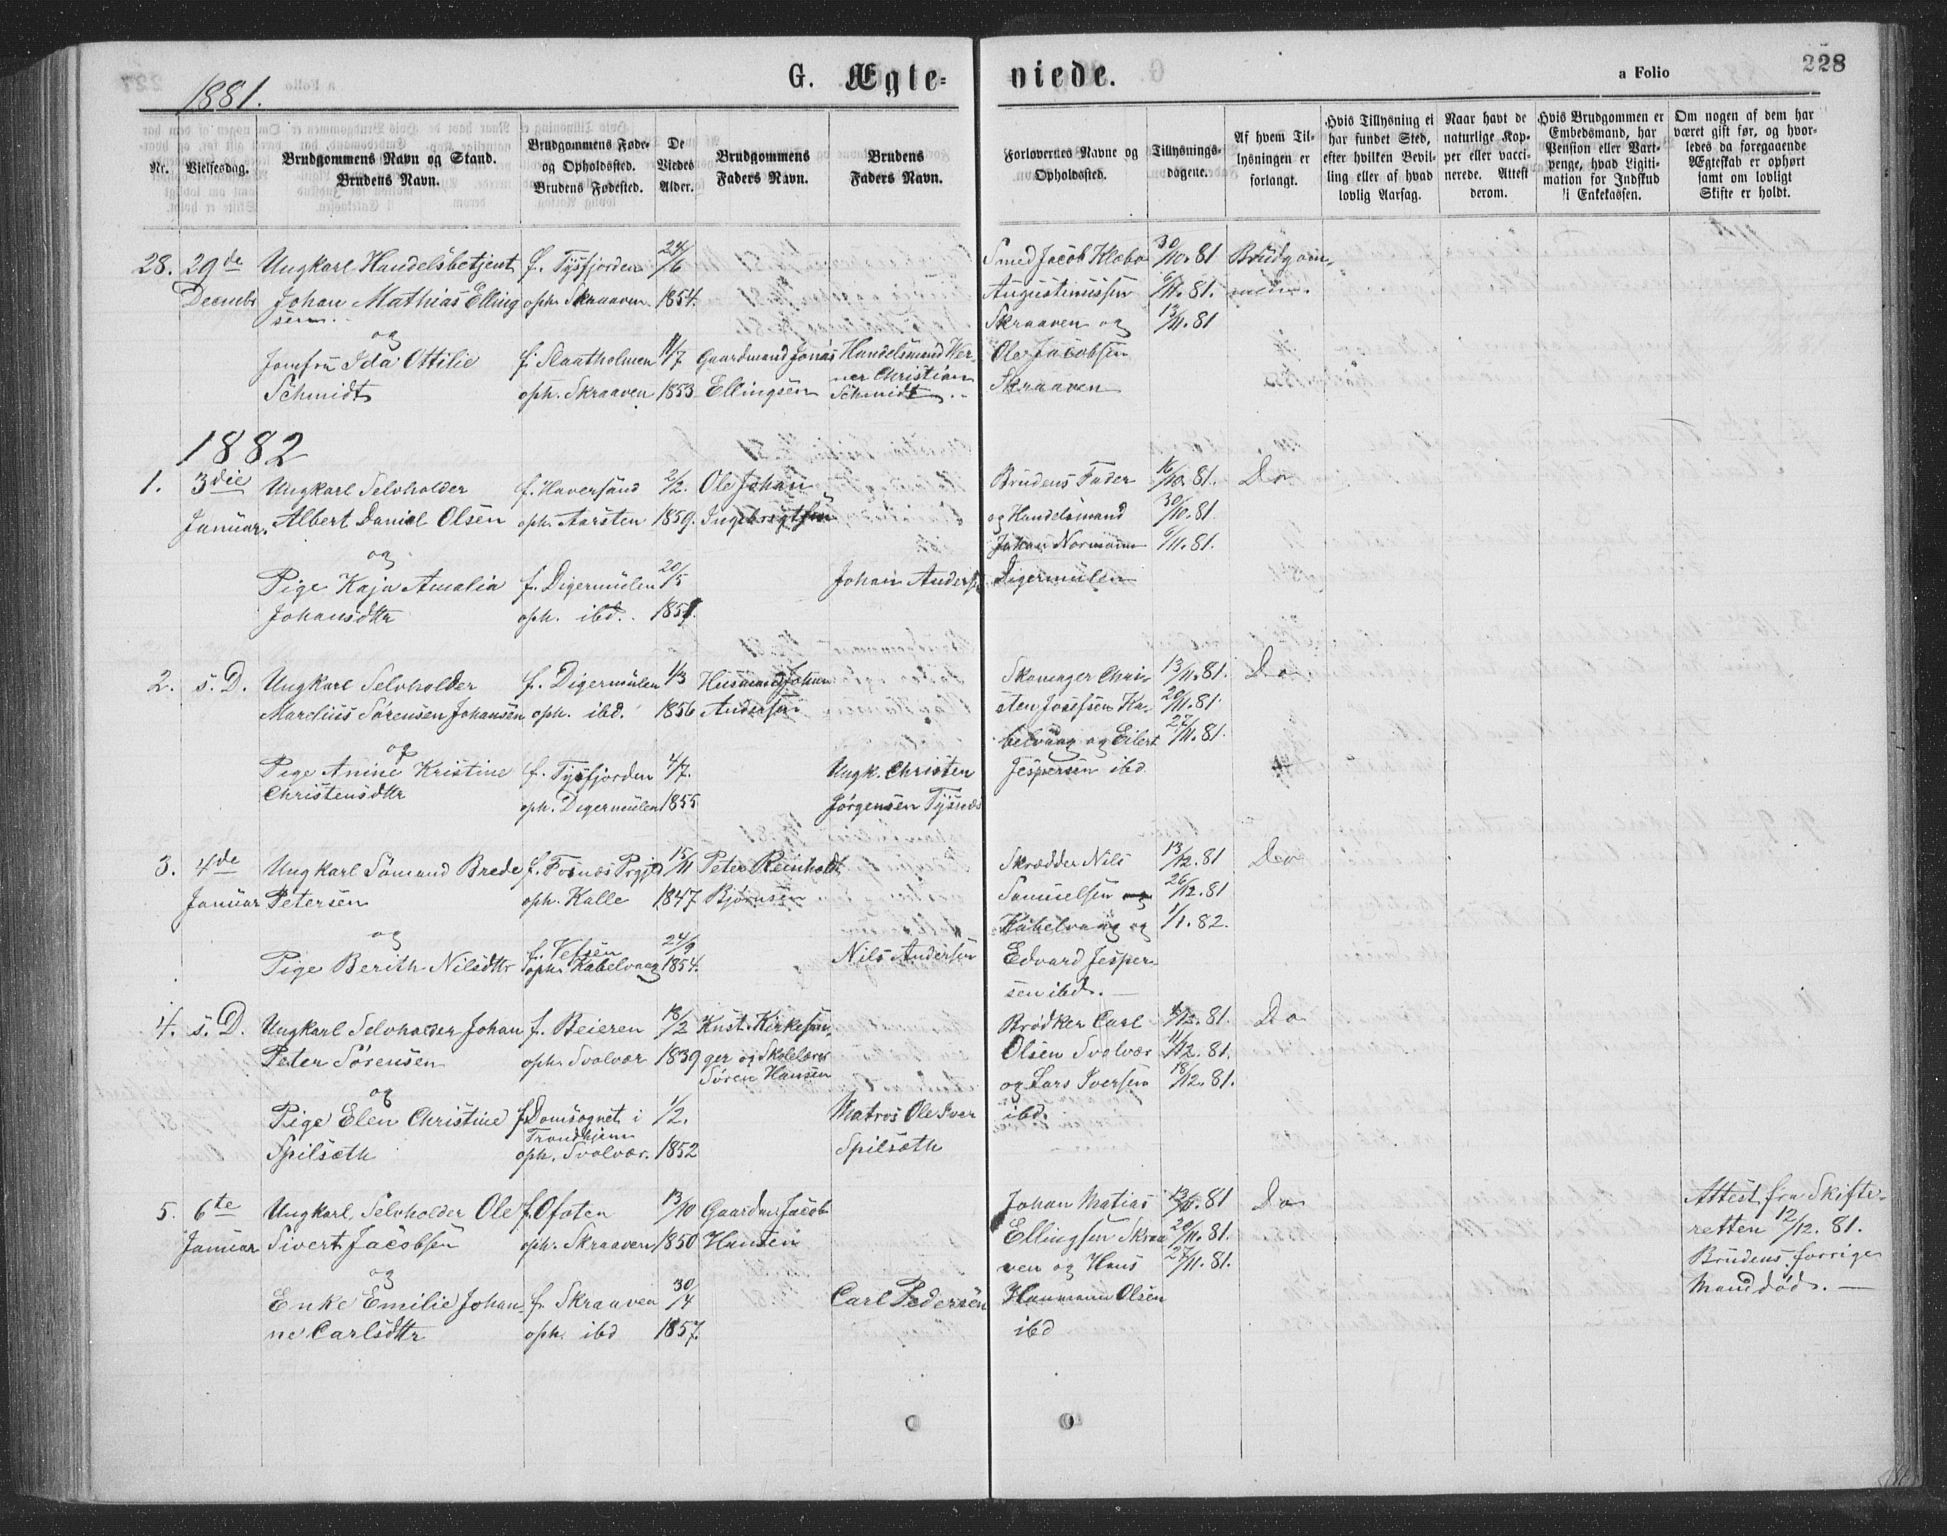 1881.
G. Ægte-
viede.
a Folio
228
Nr.
Vielsesdag.
Brudgommens Navn og Stand.
Brudens Navn.
Brudgommens Føde-
og Opholdssted.
Brudens Fødested.
De
Viedes
Alder.
Brudgommens
Faders Navn.
Brudens
Faders Navn.
Forlovernes Navne og
Opholdssted.
Tillysnings-
dagene.
Af hvem Til-
lysningen er
forlangt.
Hvis Tillysning ei
har fundet Sted,
efter hvilken Bevil-
ling eller af hvad
lovlig Aarsag.
Naar havt de
naturlige Kop-
per eller vacci-
nerede. Attest
derom.
Hvis Brudgommen er
Embedsmand, har
Pension eller Vart-
penge, hvad Ligiti-
mation for Indskud
i Enkekassen.
Om nogen af dem har
været gift før, og hvor-
ledes da foregaaende
Ægteskab er ophørt
samt om lovligt
Skifte er holdt.
28.
29de
Decmbr
Ungkarl Handelsbetjent
Johan Mathias Elling
sen.
og
Jomfru Ida Ottilie
Schmidt
f. Tysfjorden
oph. Skraaven
f. Slaatholmen
oph. Skraaven
24/6
1854.
11/7
1853
Gaardmand Jonas
Ellingsen
Handelsmand Wer-
ner Christian
Schmidt
Smed Jacob Klæbo
Augustinussen
Skraaven og
Ole Jacobsen
Skraaven
30/10. 81
6/11. 81.
13/11. 81
Brudgom-
men.
1882
1.
3die
Januar.
Ungkarl Selvholder
Albert Daniel Olsen
og
Pige Kaja Amalia
Johansdtr
f. Haversand
oph. Aarsten
f. Digermulen
oph. ibd.
2/2.
1859.
20/5
1857.
Ole Johan
Ingebrigtsen
Johan Anders
Brudens Fader
og Handelsmand
Johan Normann
Digermulen
16/10. 81.
30/10. 81.
6/11. 81.
Do
2.
s. D.
Ungkarl Selvholder
Mardius Sørensen Johansen
og
Pige Anine Kristine
Christensdtr
f. Digermulen
oph. ibd.
f. Tysfjorden
oph. Digermulen
1/3
1856
4/7.
1855
Husmand Johan
Andersen
Ungk. Christen
Jørgensen Tysnæs
Skomager Chri-
sten Josefsen Ka-
belvaag og Eilert
Jespersen ibd.
13/11. 81.
20/11. 81.
27/11. 81.
Do
3.
4de
Januar
Ungkarl Sømand Brede
Petersen
og
Pige Berith Nilsdtr
f. Fosnæs Prgjld
oph. Kalle
f. Vefsen
oph. Kabelvaag
15/11
1847
24/9
1854.
Peter Reinholdt
Bjørnsen
Nils Andersen
Skrædder Nils
Samuelsen
Kabelvaag og
Edvard Jesper-
sen ibd.
13/12. 81
26/12. 81
1/1. 82.
Do
4.
s. D.
Ungkarl Selvholder Johan
Peter Sørensen
og
Pige Elen Christine
Spilsæth
f. Beieren
oph. Svolvær
f. Domsognet i
Trondhjem
oph. Svolvær.
18/2
1839
1/2.
1852
Kust. Kirkesan-
ger og Skolelærer
Søren Hansen
Matros Ole Iver
Spilsæth
Brødker Carl
Olsen Svolvær
og Lars Iversen
ibd.
4/12. 81.
11/12. 81.
18/12. 81.
Do
5.
6te
Januar
Ungkarl, Selvholder Ole
Sivert Jacobsen
og
Enke Emilie Johan-
ne Carlsdtr
f. Ofoten
oph. Skraaven
f. Skraaven
oph. ibd
13/10
1850
30/4
1857.
Gaardm. Jacob
Hansen
Carl Pedersen
Johan Matias
Ellingsen Skraa
ven og Hans
Hanmann Olsen
ibd
13/11. 81
20/11. 81.
27/11. 81.
Do
Attest fra Skifte-
retten 12/12. 81.
Brudens forrige
Mand død. —